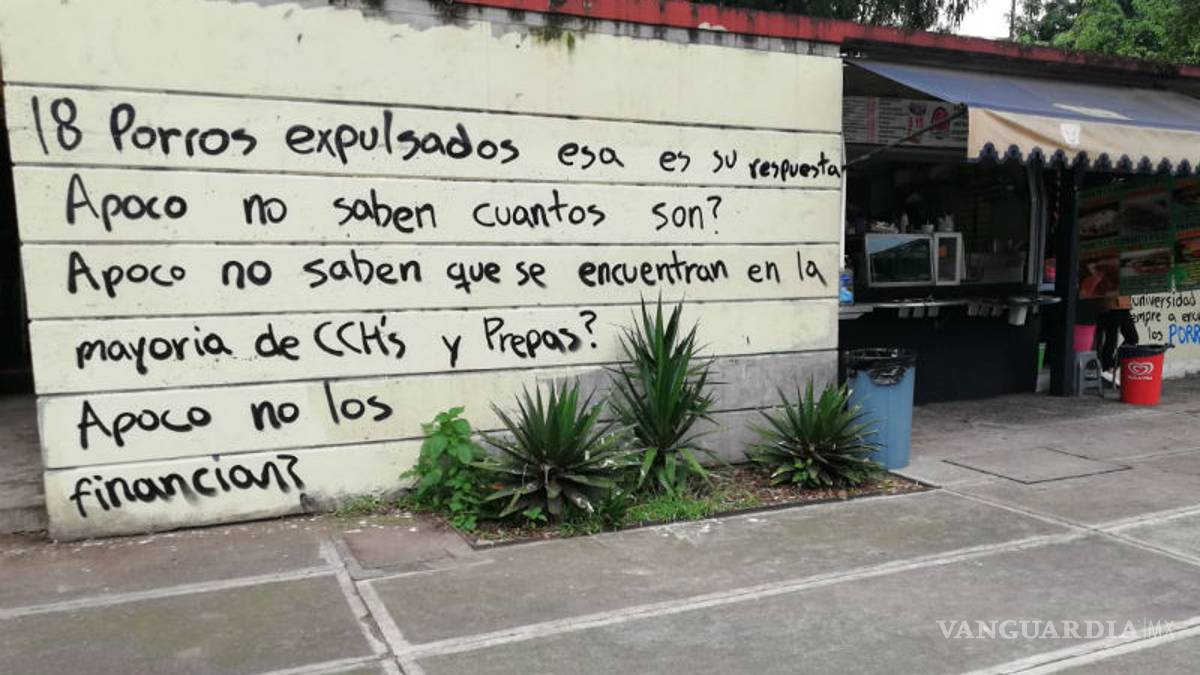 18 Porros expulsados esa es su respuesta
Apoco no saben cuantos son?
Apoco no saben que se encuentran en la
mayoria de CCH's y Prepas?
Apoco no los
financian?
universidad
los PORR
VANGUARDIA|MX